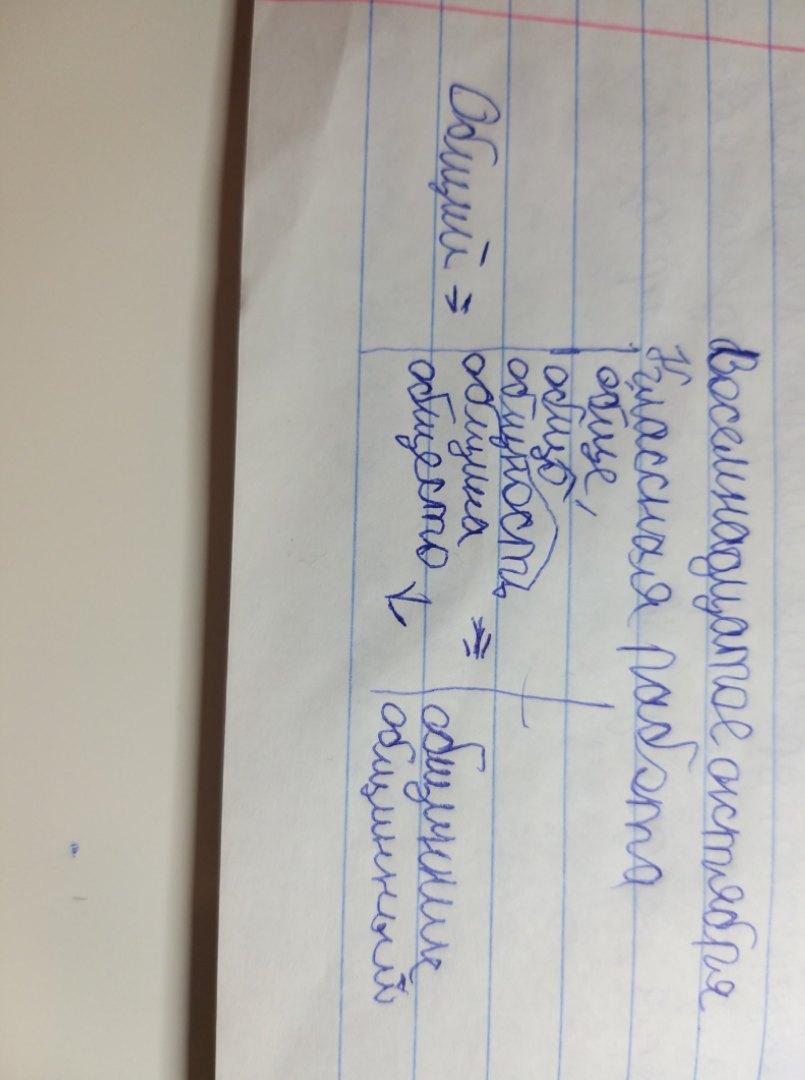 Восемнадцатое октября
Классная работа
обще,
общо
общность
Общий => община =>
общество ↓
общинник
общинный